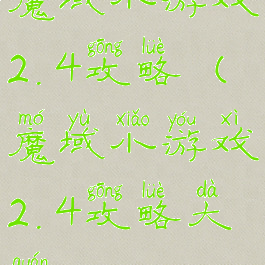 魔域来游戏
gōng lüè
2.4攻略（
mó yù xiǎo yóu xì
魔域小游戏
gōng lüè dà
2.4攻略大
quán